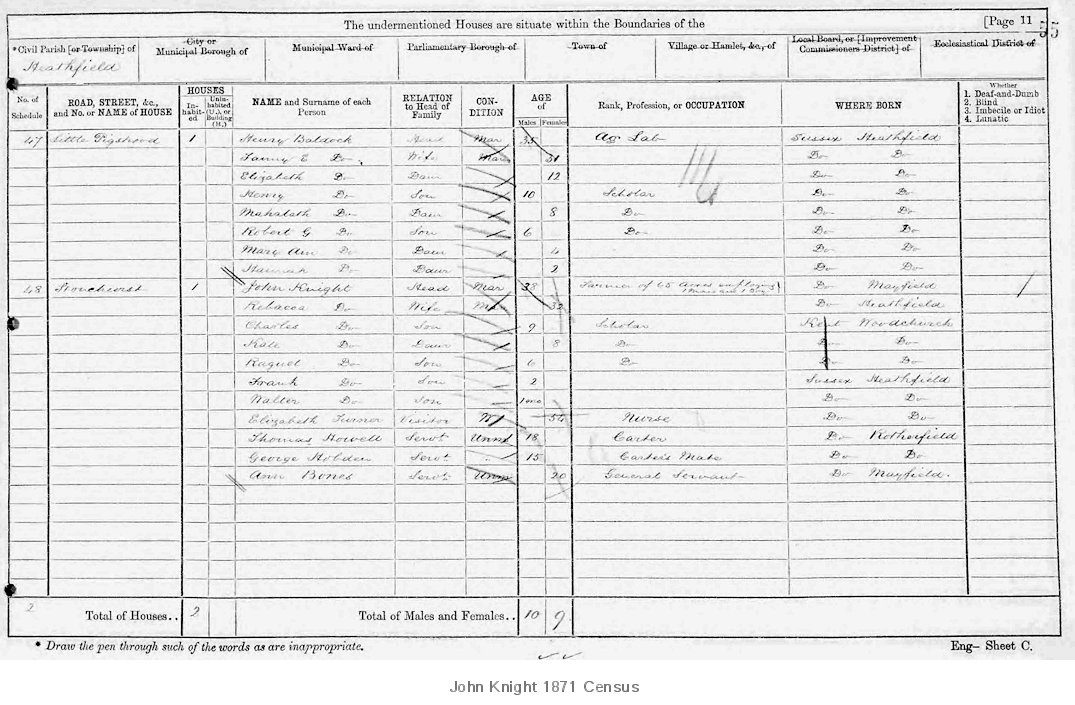 The undermentioned Houses are situate within the Boundaries of the
[Page 11
55
*Civil Parish [or Township] of
City or Municipal Borough of
Municipal Ward of
Parliamentary Borough of
Town of
Village or Hamlet, &c., of
Local Board, or [Improvement Commissioners District] of
Ecclesiastical District of
Heathfield
No. of Schedule
ROAD, STREET, &c., and No. or NAME of HOUSE
HOUSES
Inhabited
Uninhabited (U.), or Building (B.)
NAME and Surname of each Person
RELATION to Head of Family
CONDITION
AGE of
Males
Females
Rank, Profession, or OCCUPATION
WHERE BORN
Whether
1. Deaf-and-Dumb
2. Blind
3. Imbecile or Idiot
4. Lunatic
47 Little Pigstrood 1 Henry Baldock Head Mar 35 Ag Lab Sussex Heathfield
Fanny E Do Wife Mar 31 Do Do
Elizabeth Do Daur 12 Do Do
Henry Do Son 10 Scholar Do Do
Mahalath Do Daur 8 Do Do Do
Robert G Do Son 6 Do Do Do
Mary Ann Do Daur 4 Do Do
Hannah Do Daur 2 Do Do
48 1 John Knight Head Mar 38 Farmer of 65 Acres employing 1 Man and 1 Boy Do Mayfield
Rebecca Do Wife Mar 32 Do Heathfield
Charles Do Son 9 Scholar Kent Woodchurch
Kate Do Daur 8 Do Do Do
Raguel Do Son 6 Do Do Do
Frank Do Son 2 Sussex Heathfield
Walter Do Son 1mo Do Do
Elizabeth Turner Visitor W 54 Nurse Do Do
Thomas Howell Servt Unm 18 Carter Do Rotherfield
George Hobden Servt 15 Carter's Mate Do Do
Ann Bones Servt Unm 20 General Servant Do Mayfield.
2 Total of Houses.. 2 Total of Males and Females.. 10 9
* Draw the pen through such of the words as are inappropriate.
Eng- Sheet C.
John Knight 1871 Census